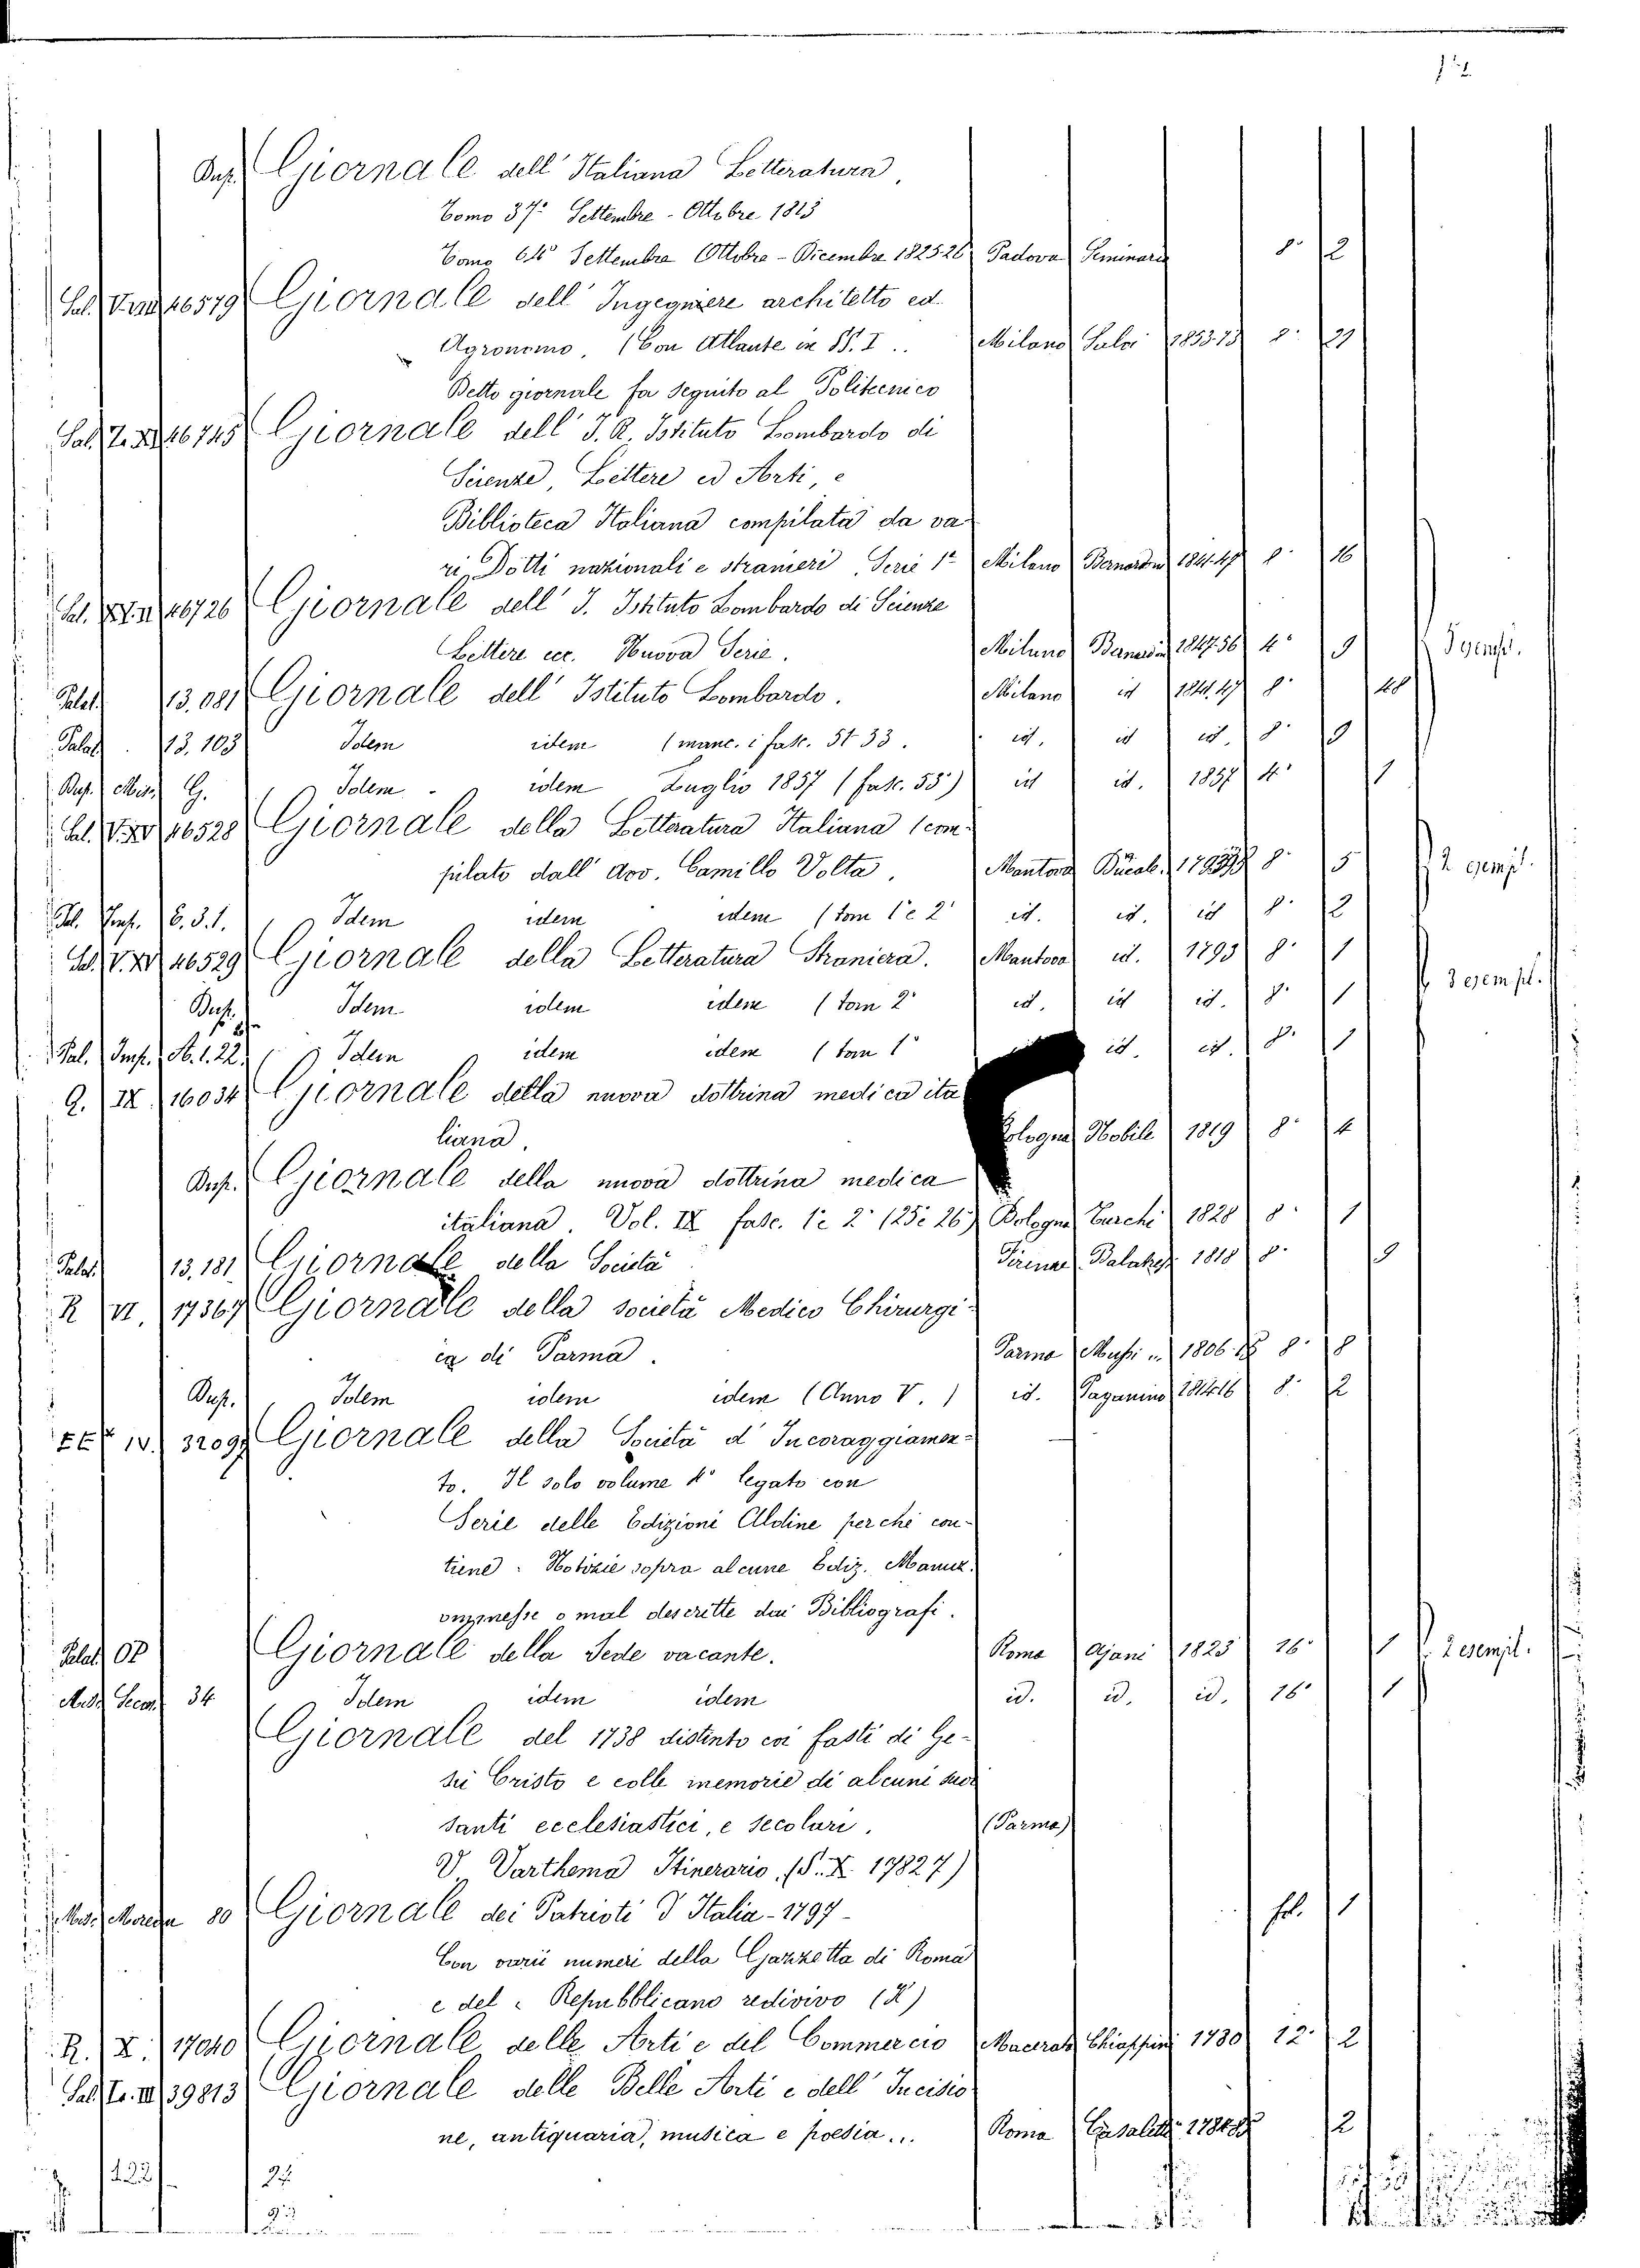 12
Dup. Giornale dell' Italiana Letteratura.
Tomo 37° Settembre - Ottobre 1813
Tomo 64° Settembre Ottobre - Dicembre 1825.26 Padova Seminario 8° 2
Sal. 46579 Giornale dell' Ingegnere architetto ed
Agronomo. (Con Atlante in Milano Salvi 8°
Detto giornale fa seguito al Politecnico
Sal. 46745 Giornale dell' I. R. Istituto Lombardo di
Scienze, Lettere ed Arti, e
Biblioteca Italiana compilata da va
ri Dotti nazionali e stranieri. Serie 1ª Milano Bernardoni 1841.47 8° 16
Sal. 46726 Giornale dell' I. Istituto Lombardo di Scienze
Lettere ecc. Nuova Serie. Milano Bernardoni 1847.56 4° 9 3 esempl.
Palat. 13.081 Giornale dell' Istituto Lombardo. Milano id 1841.47 8°
Palat. 13.103 Idem idem (manc. i fasc. 31 33. id. id id. 8° 9
Dup. Mss. G. Idem idem Luglio 1857 (fasc. 55°) id id. 1857 4° 1
Sal. V. XV 46528 Giornale della Letteratura Italiana (com
pilato dall' Avv. Camillo Volta. Mantova 8° 5 2 esempl.
Pal. Imp. 6.3.1. Idem idem idem (tom 1° e 2° id. id. id 8° 2
Sal. V. XV 46529 Giornale della Letteratura Straniera. Mantova id. 1793 8° 1
Dup. Idem idem idem (tom 2° id. id id. 8° 1 3 esempl.
Pal. Imp. 1.22. Idem idem idem (tom 1° id. id. 8° 1
Q. IX 16034 Giornale della nuova dottrina medica ita
liana. Bologna Nobili 1819 8° 4
Dup. Giornale della nuova dottrina medica
italiana. Vol. IX fasc. 1° e 2° (25 e 26) Bologna Turchi 1828 8° 1
Palat. 13.181 Giornale della Società Firenze 1818 8° 9
R VI. 17367 Giornale della società Medico Chirurgi-
ca di Parma. Parma Mussi .. 1806. 8° 8
Dup. Idem idem idem (Anno V.) id. Paganino 8° 2
EE IV. 32097 Giornale della Società d' Incoraggiamen-
to. Il solo volume 4° legato con
Serie delle Edizioni Aldine perchè con-
tiene: Notizie sopra alcune Ediz. Manuz.
ommesse o mal descritte dai Bibliografi.
Palat. Giornale della Sede vacante. Roma Ajani 1823 16° 1 2 esempl.
34 Idem idem idem id. id. id. 16° 1
Giornale del 1738 distinto coi fasti di Ge-
sù Cristo e colle memorie di alcuni suoi
santi ecclesiastici, e secolari. (Parma)
V. Varthema Itinerario. (P. X. 17827)
80 Giornale dei Patrioti d' Italia - 1797 - fol. 1
Con varii numeri della Gazzetta di Roma
e del " Repubblicano redivivo (X)
R. X. 17040 Giornale delle Arti e del Commercio Macerata Chiappini 1780 12° 2
Sal. Tr. III 39813 Giornale delle Belle Arti e dell' Incisio
ne, antiquaria, musica e poesia... Roma 2